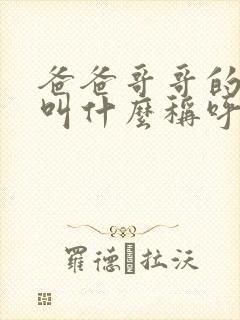 爸爸哥哥的
叫什麼稱呼
羅德 拉沃